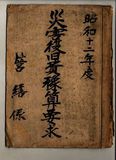 昭和十二年度
災害復旧予算要求
営繕係